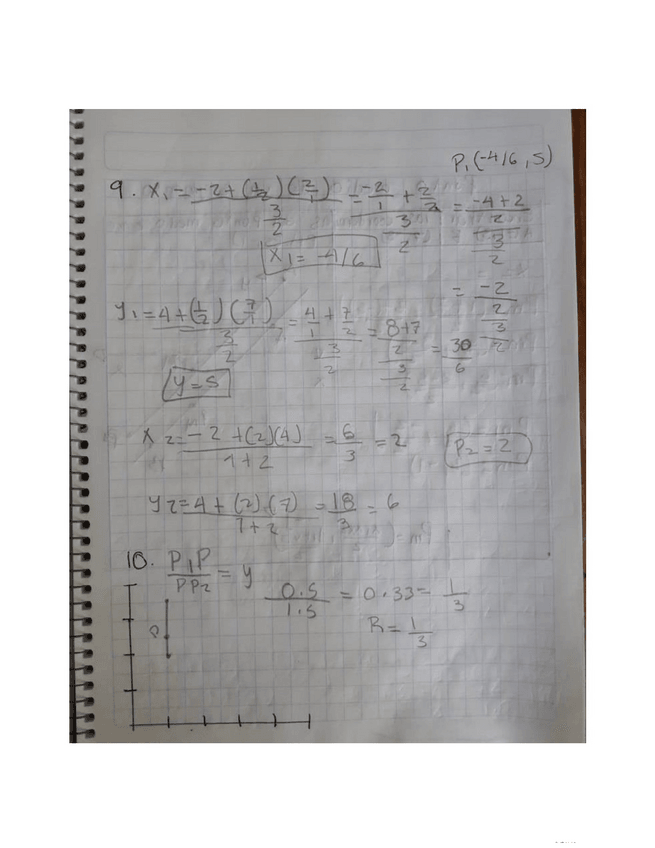 P₁(-4/6, 5)
9. X₁ = (-2 + (1/2)(2/1)) / (3/2) = (-2/1 + 2/2) / (3/2) = ((-4+2)/2) / (3/2)
X1 = -4/6
= (-2/2) / (3/2)
y₁ = 4 + (1/2)(7/1) / (3/2) = (4/1 + 7/2) / (3/2) = ((8+7)/2) / (3/2) = 30/6
y = 5
X₂ = (-2 + (2)(4)) / (1+2) = 6/3 = 2
P₂ = 2
y₂ = 4 + (2)(7) / (1+2) = 18/3 = 6
10. P₁P / PP₂ = y
0.5 / 1.5 = 0.33 = 1/3
R = 1/3
P